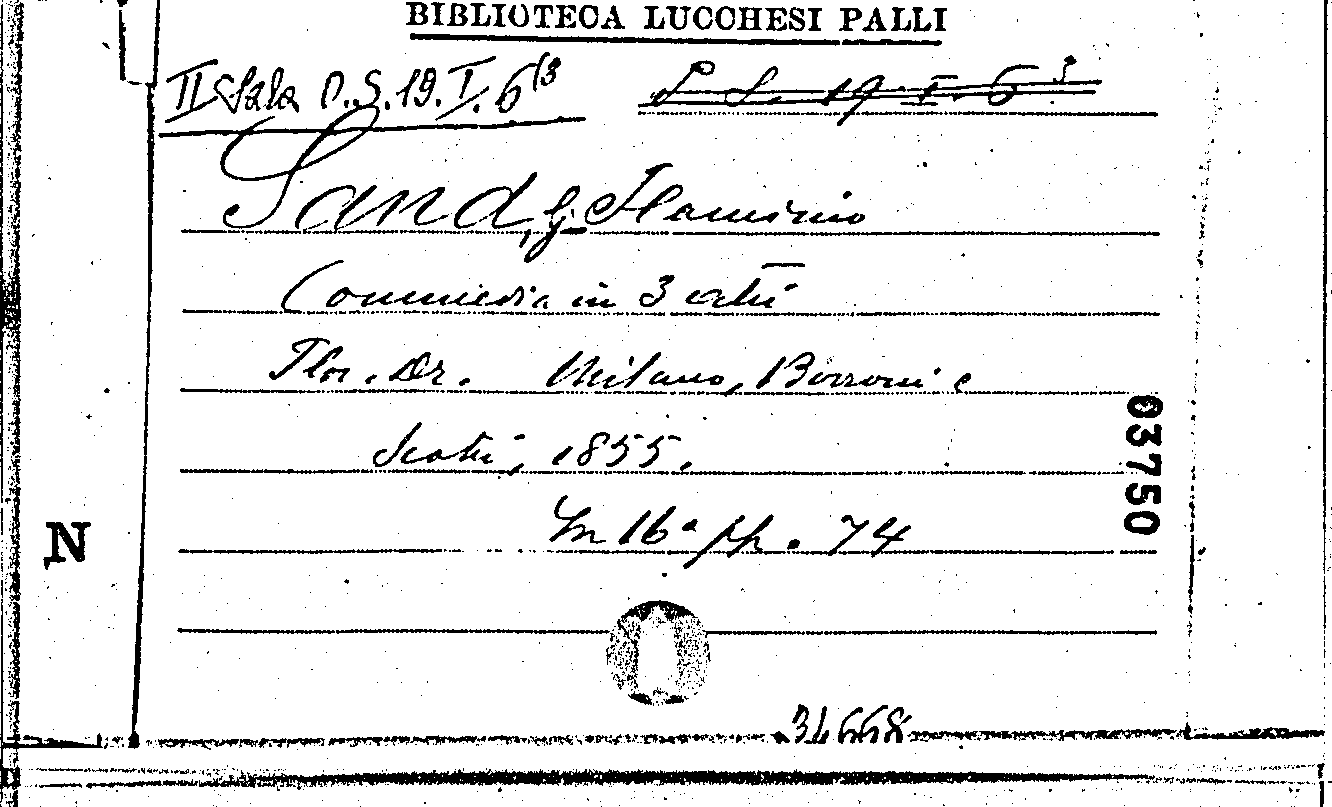 BIBLIOTECA LUCCHESI PALLI
II Sala P.S.19.I.6(3
P. S. 19 I. 6 3
Sand, G. Flaminio
Commedia in 3 atti
Flor. Dr. Milano, Borroni e
Scotti, 1855.
In 16° pp. 74
03750
N
34668